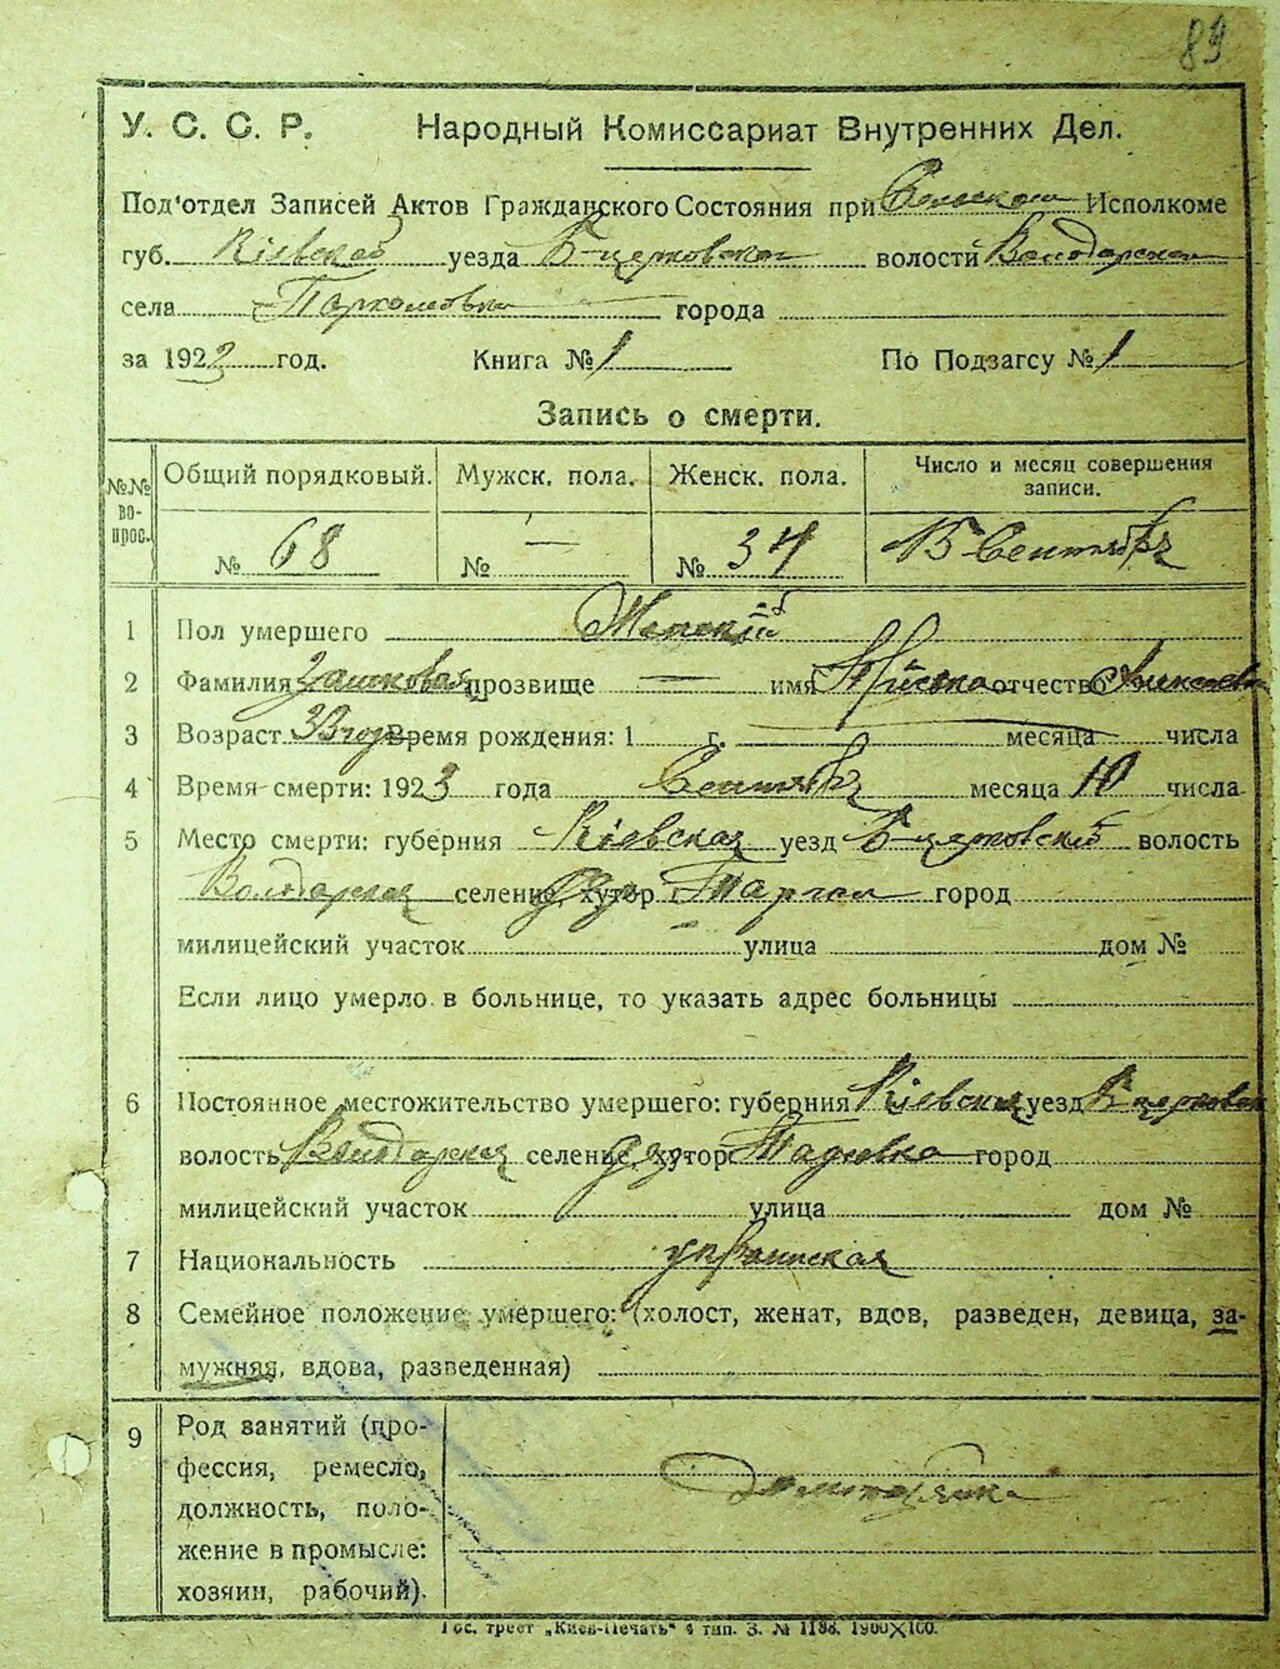 89
У. С. С. Р. Народный Комиссариат Внутренних Дел.
Под'отдел Записей Актов Гражданского Состояния при Исполкоме
губ. Кіевской уезда Б-церковской волости Володарской
села города
за 1923 год. Книга № 1 По Подзагсу № 1
Запись о смерти.
№№ во-прос. Общий порядковый. Мужск. пола. Женск. пола. Число и месяц совершения записи.
№ 68 № — № 34 15 Сентября
1 Пол умершего Женскій
2 Фамилия прозвище — имя отчество
3 Возраст Время рождения: 1 г. месяца числа
4 Время смерти: 1923 года Сентября месяца 10 числа
5 Место смерти: губерния Кіевская уезд Б-церковскій волость
Володарская селение, хутор город
милицейский участок улица дом №
Если лицо умерло в больнице, то указать адрес больницы
6 Постоянное местожительство умершего: губерния Кіевская уезд
волость Володарская селение, хутор город
милицейский участок улица дом №
7 Национальность украинская
8 Семейное положение умершего: (холост, женат, вдов, разведен, девица, за-
мужняя, вдова, разведенная)
9 Род занятий (про-
фессия, ремесло,
должность, поло-
жение в промысле:
хозяин, рабочий).
Гос. трест „Киев-Печать" 4 тип. З. № 1198. 1900×100.